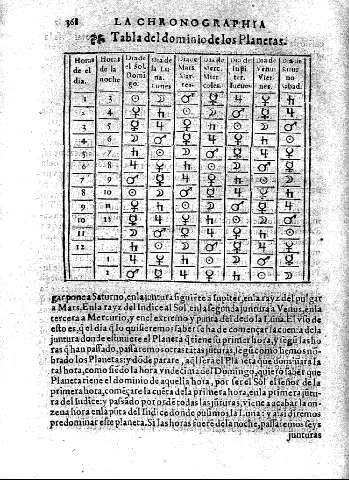 368 LA CHRONOGRAPHIA
Tabla del dominio de los Planetas.
Horas de el dia. | Horas de la noche | Dia de el Sol. Domingo. | Dia de la Luna. Lunes | Dia de Mars. Martes. | Dia de Merc. Miercoles. | Dia de Iupiter. Iueues | Dia de Venus Viernes. | Dia de Saturno sabad.
1 | 3 | ☉ | ☽ | ♂ | ☿ | ♃ | ♀ | ♄
2 | 4 | ♀ | ♄ | ☉ | ☽ | ♂ | ☿ | ♃
3 | 5 | ☿ | ♃ | ♀ | ♄ | ☉ | ☽ | ♂
4 | 6 | ☽ | ♂ | ☿ | ♃ | ♀ | ♄ | ☉
5 | 7 | ♄ | ☉ | ☽ | ♂ | ☿ | ♃ | ♀
6 | 8 | ♃ | ♀ | ♄ | ☉ | ☽ | ♂ | ☿
7 | 9 | ♂ | ☿ | ♃ | ♀ | ♄ | ☉ | ☽
8 | 10 | ☉ | ☽ | ♂ | ☿ | ♃ | ♀ | ♄
9 | 11 | ♀ | ♄ | ☉ | ☽ | ♂ | ☿ | ♃
10 | 12 | ☿ | ♃ | ♀ | ♄ | ☉ | ☽ | ♂
11 | ☽ | ♂ | ☿ | ♃ | ♀ | ♄ | ☉
12 | ♄ | ☉ | ☽ | ♂ | ☿ | ♃ | ♀
1 | ♃ | ♀ | ♄ | ☉ | ☽ | ♂ | ☿
2 | ♂ | ☿ | ♃ | ♀ | ♄ | ☉ | ☽
gar pone a Saturno, en la juntura siguiẽte a Iupiter, en la rayz del pulgar
a Mars. En la rayz del Indice al Sol, en la segunda juntura a Venus, en la
tercera a Mercurio, y en el extremo y punta del dedo la Luna. El vso de
esto es, q̃ el dia q̃ lo quisieremos saber se ha de començar la cuenta de la
juntura donde estuuiere el Planeta q̃ tiene su primera hora, y segũ las ho
ras q̃ han passado, passaremos otras tãtas jũturas, segũ como hemos nõ
brado los Planetas: y dõde parare, aql sera el Planeta que dominara la
tal hora, como siẽdo la hora vndecima del Domingo, quiero saber que
Planeta tiene el dominio de aquella hora, por ser el Sol el señor de la
primera hora, començare la cuẽta de la primera hora, en la primera jũtu
ra del Indice: y passado por ordẽ todas las jũturas, viene a acabar la on-
zena hora en la pũta del Indice donde pusimos la Luna: y assi diremos
predominar este planeta. Si las horas fuerẽ de la noche, passaremos seys
junturas